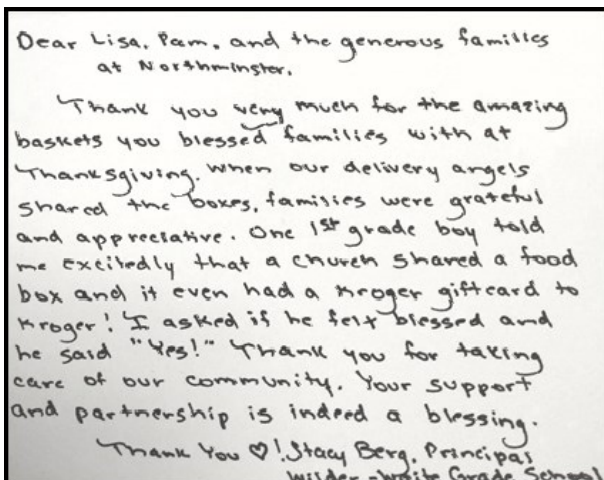 Dear Lisa, Pam, and the generous families
at Northminster,
Thank you very much for the amazing
baskets you blessed families with at
Thanksgiving. When our delivery angels
shared the boxes, families were grateful
and appreciative. One 1st grade boy told
me excitedly that a church shared a food
box and it even had a Kroger giftcard to
Kroger! I asked if he felt blessed and
he said "Yes!" Thank you for taking
care of our community. Your support
and partnership is indeed a blessing.
Thank You ♡! Stacy Berg, Principal
Wilder-Waite Grade School